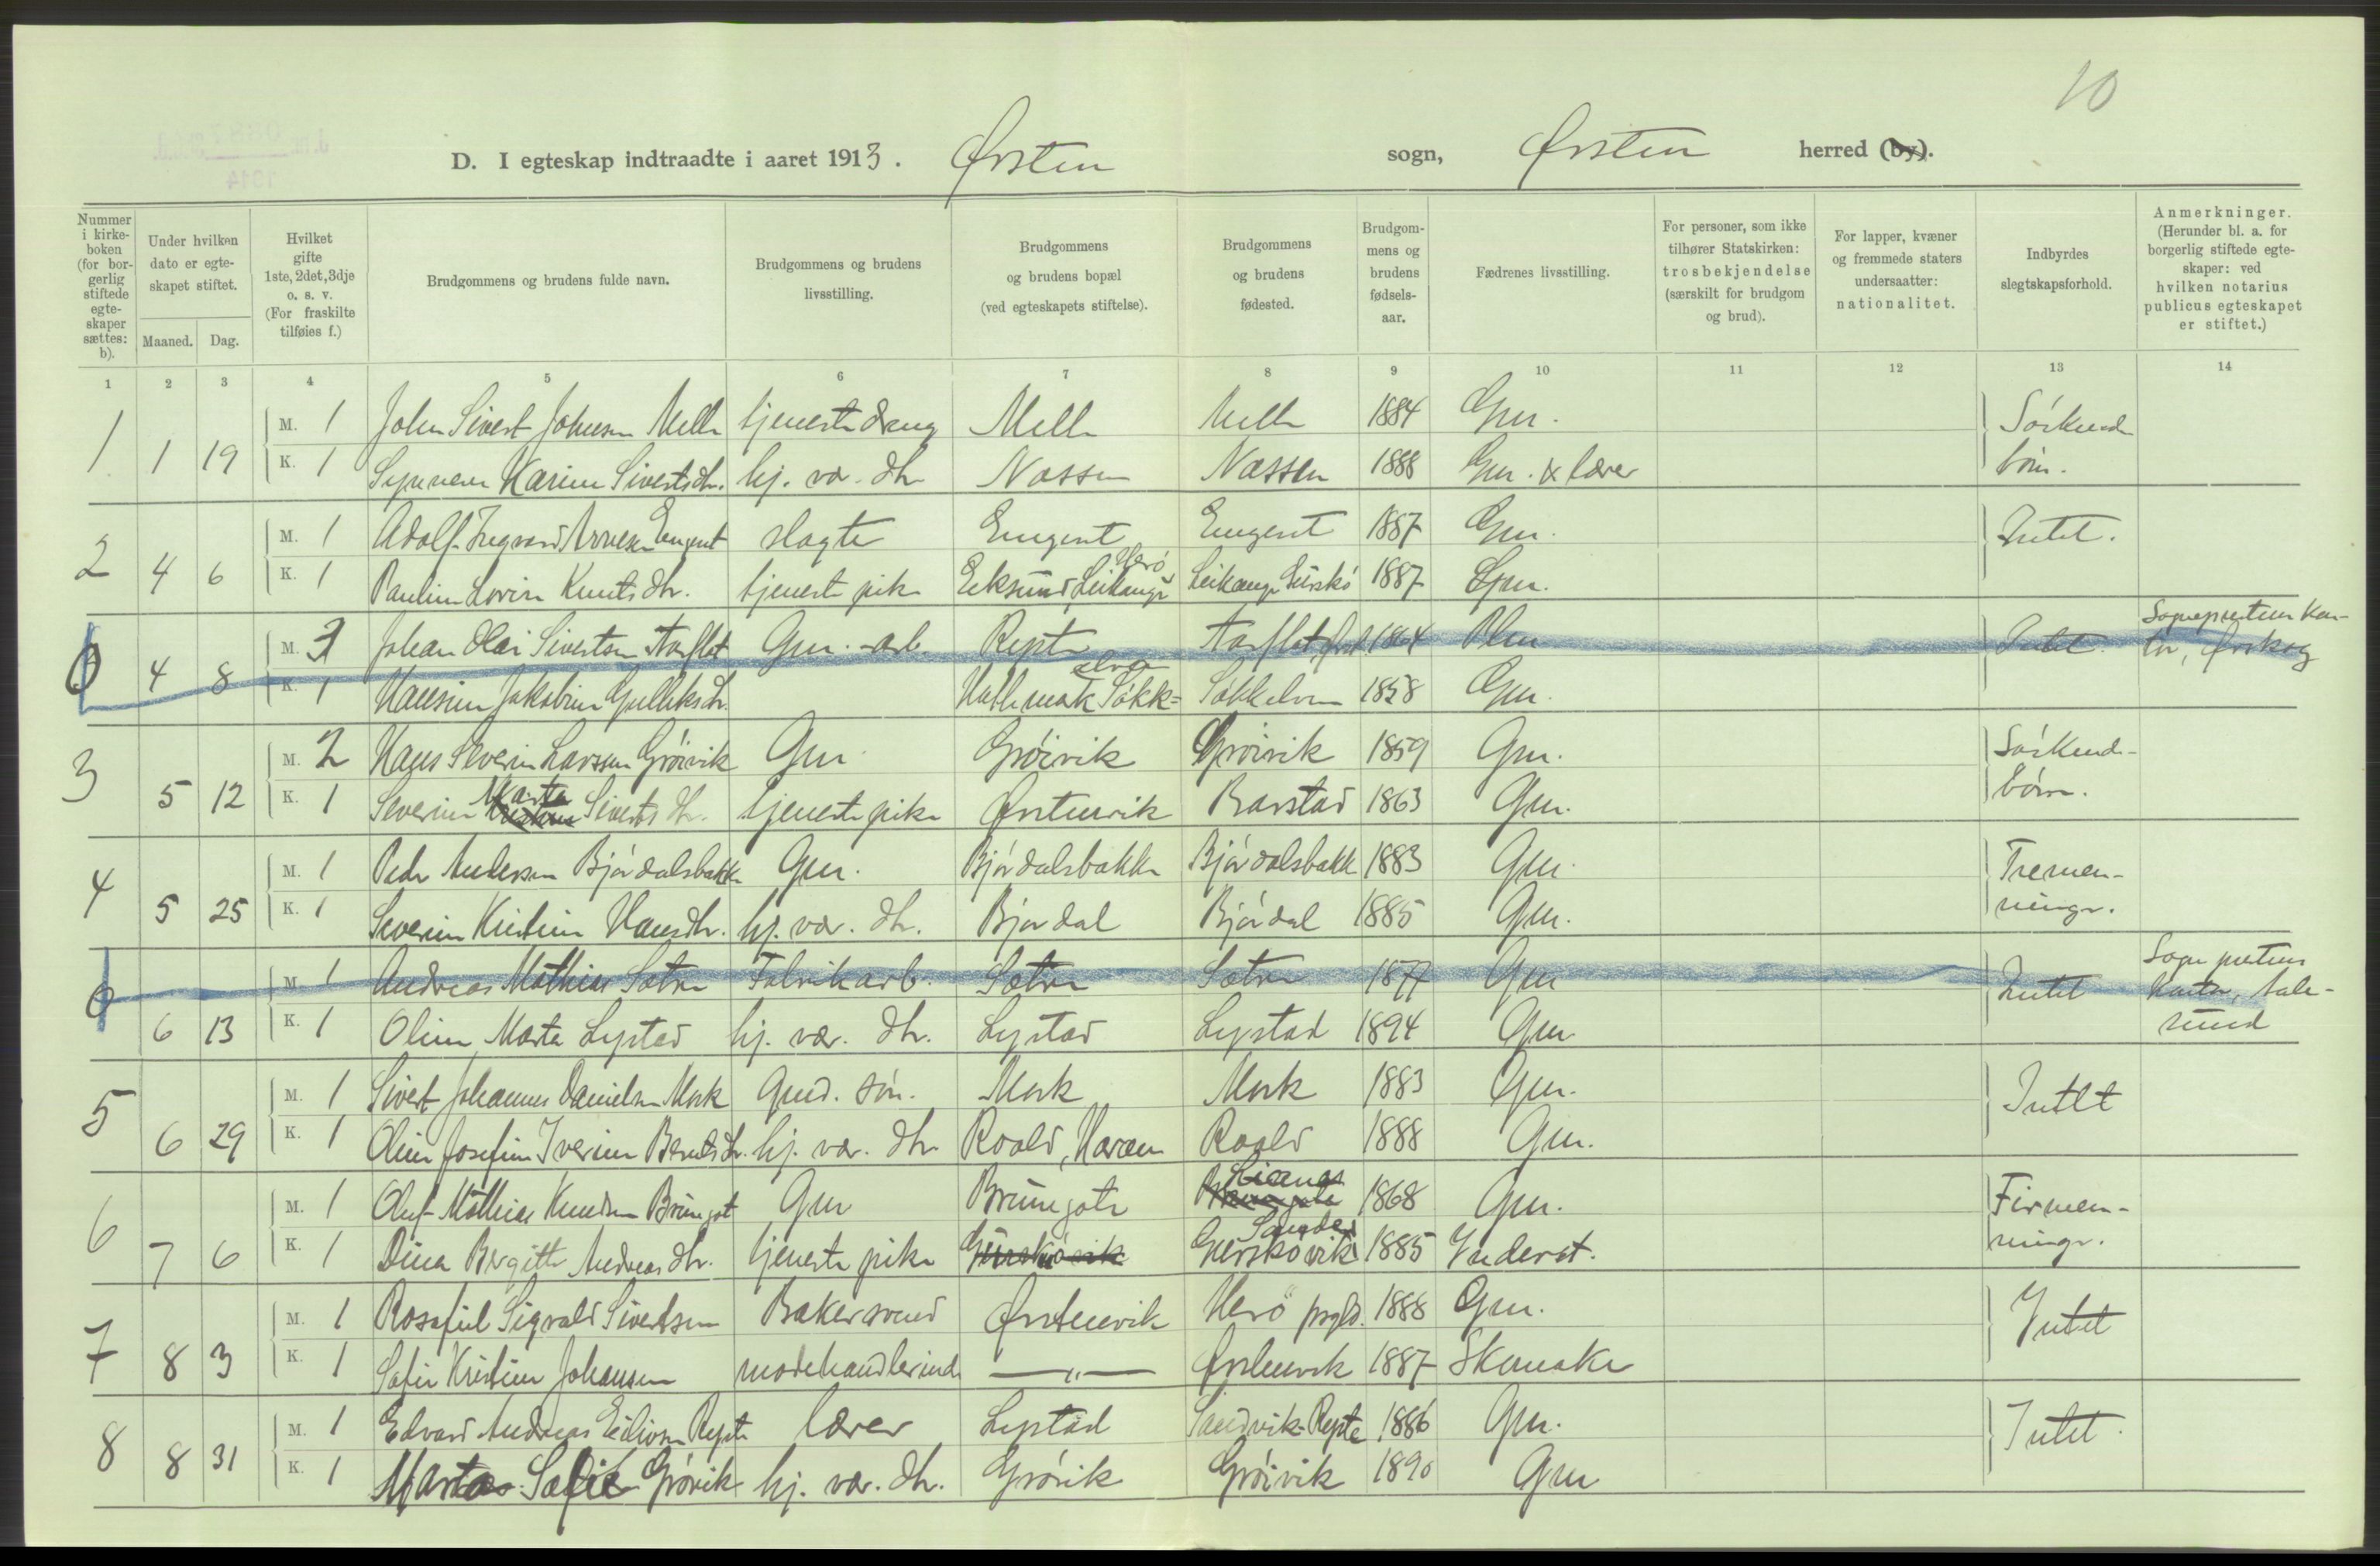 10
D. I egteskap indtraadte i aaret 1913. Ørsten sogn, Ørsten herred (by).
Nummer i kirke-boken (for bor-gerlig stiftede egte-skaper sættes: b).
Under hvilken dato er egte-skapet stiftet.
Maaned. Dag.
Hvilket gifte 1ste, 2det, 3dje o. s. v. (For fraskilte tilføies f.)
Brudgommens og brudens fulde navn.
Brudgommens og brudens livsstilling.
Brudgommens og brudens bopæl (ved egteskapets stiftelse).
Brudgommens og brudens fødested.
Brudgom-mens og brudens fødsels-aar.
Fædrenes livsstilling.
For personer, som ikke tilhører Statskirken: trosbekjendelse (særskilt for brudgom og brud).
For lapper, kvæner og fremmede staters undersaatter: nationalitet.
Indbyrdes slegtskapsforhold.
Anmerkninger. (Herunder bl. a. for borgerlig stiftede egte-skaper: ved hvilken notarius publicus egteskapet er stiftet.)
1 2 3 4 5 6 7 8 9 10 11 12 13 14
M. 1 John Sivert Johnsen Melle tjenestedreng Melle Melle 1884 Gm. Søskende
1 1 19 K. 1 Karine Sivertsdtr. hj. vær. dtr Næssen Næssen 1888 Gm. & lærer børn.
M. 1 Adolf Ingvard Engeset slagter Engeset Engeset 1887 Gm. Intet.
2 4 6 K. 1 Pauline Lovise Knutsdtr. tjenestepike Eiksund Leikanger Herö Leikanger Gurskö 1887 Gm.
M. 3 Johan Olai Sivertsen Aarflot Gm. - arb. Repste Aarflot, 1864 Intet Sogneprestens Kon-tor, Ørskog
4 8 K. 1 Hansine Jakobine Søkk=elven Søkkelven 1858 Gm.
M. 2 Hans Severin Larssen Grøivik Gm Grøivik Grøivik 1859 Gm. Søskende-
3 5 12 K. 1 Severine Marta Sivertsdtr. tjenestepike Ørstenvik Barstad 1863 Gm. børn.
M. 1 Peder Andersen Bjørdalsbakke Gm. Bjørdalsbakke Bjørdalsbakk 1883 Gm. Tremen-
4 5 25 K. 1 Severine Kristine Hansdtr. hj. vær. dtr. Bjørdal Bjørdal 1885 Gm. ninger.
M. 1 Andreas Mathias Sætre Fabrikarb. Sætre Sætre 1877 Gm Intet Sogneprestens
6 13 K. 1 Oline Marta Lystad hj. vær. dtr. Lystad Lystad 1894 Gm Kontor, Aale-sund
M. 1 Sivert Johannes Danielsen Mork Gmd. søn. Mork Mork 1883 Gm. Intet
5 6 29 K. 1 Oline Josefine Iverine Berntsdtr. hj. vær. dtr Roald, Haram Roald 1888 Gm.
M. 1 Oluf Mathias Knudsen Brungot Gm Brungot Lianes 1868 Gm. Firmen-
6 7 6 K. 1 Dina Birgitte Andreasdtr. tjenestepike Gurskøvik Gurskøvik Sande 1885 Inderst. ninger.
M. 1 Rosafiel Sigvald Sivertsen Bakersvend Ørstenvik Herö prgld. 1888 Gm. Intet
7 8 3 K. 1 Sofie Kristine Johansen modehandlerinde —"— Ørstenvik 1887 Skomaker
M. 1 Edvard Andreas Eilivsen Repste lærer Lystad Sandvik-Repste 1886 Gm. Intet
8 8 31 K. 1 Marta Sofie Grøvik hj. vær. dtr. Grövik Grøivik 1890 Gm